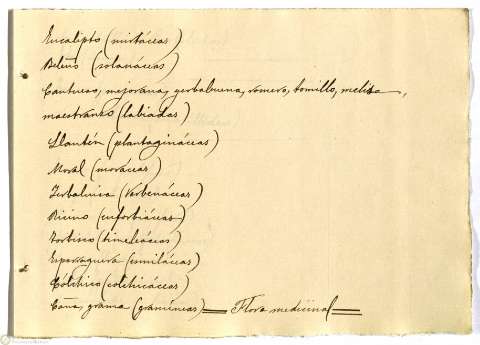 Eucalipto (mirtáceas)
Beleño (solanáceas)
Cantueso, mejorana, yerbabuena, romero, tomillo, melisa,
maestranzo (labiadas)
Llantén (plantagináceas)
Moral (moráceas)
Yerbaluisa (verbenáceas)
Ricino (euforbiáceas)
Torbisco (timeleáceas)
Esparraguera (esmiláceas)
Cólchico (colchicáceas)
Caña, grama (gramíneas) Flora medicinal